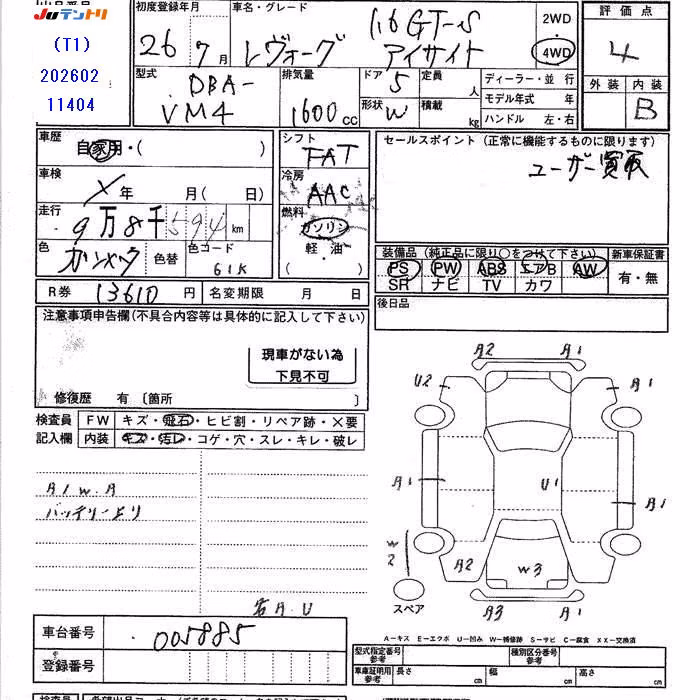 出品番号
JUテントリ
(T1)
202602
11404
初度登録年月
26 7月
車名・グレード
レヴォーグ 1.6GT-S
アイサイト
2WD
4WD
評価点
4
外装 内装
B
型式
DBA-
VM4
排気量
1600cc
ドア 5
形状 W
定員 人
積載 kg
ディーラー・並 行
モデル年式 年
ハンドル 左・右
車歴
自家用・( )
車検
X年 月( 日)
走行
9万8千594km
色
ガンメタ
色替
色コード
61K
シフト
FAT
冷房
AAC
燃料
ガソリン
軽・油
( )
セールスポイント(正常に機能するものに限ります)
ユーザー買取
装備品(純正品に限り○をつけて下さい)
新車保証書
PS PW ABS エアB AW
SR ナビ TV カワ
有・無
後日品
R券 13610円
名変期限 月 日
注意事項申告欄(不具合内容等は具体的に記入して下さい)
現車がない為
下見不可
修復歴 有〔箇所 〕
検査員
記入欄
FW キズ・飛石・ヒビ割・リペア跡・×要
内装 キズ・汚レ・コゲ・穴・スレ・キレ・破レ
A/W.A
バッテリーよりA.U
車台番号 005885
登録番号
A2 A1
U2 A1
A1 U1 A1
W2
A2 W3
A3 A1
スペア
A-キズ E-エクボ U-凹み W-補修跡 S-サビ C-腐食 XX-交換済
型式指定番号
参考
種別区分番号
参考
車庫証明用
参考
長さ cm
幅 cm
高さ cm
検査員